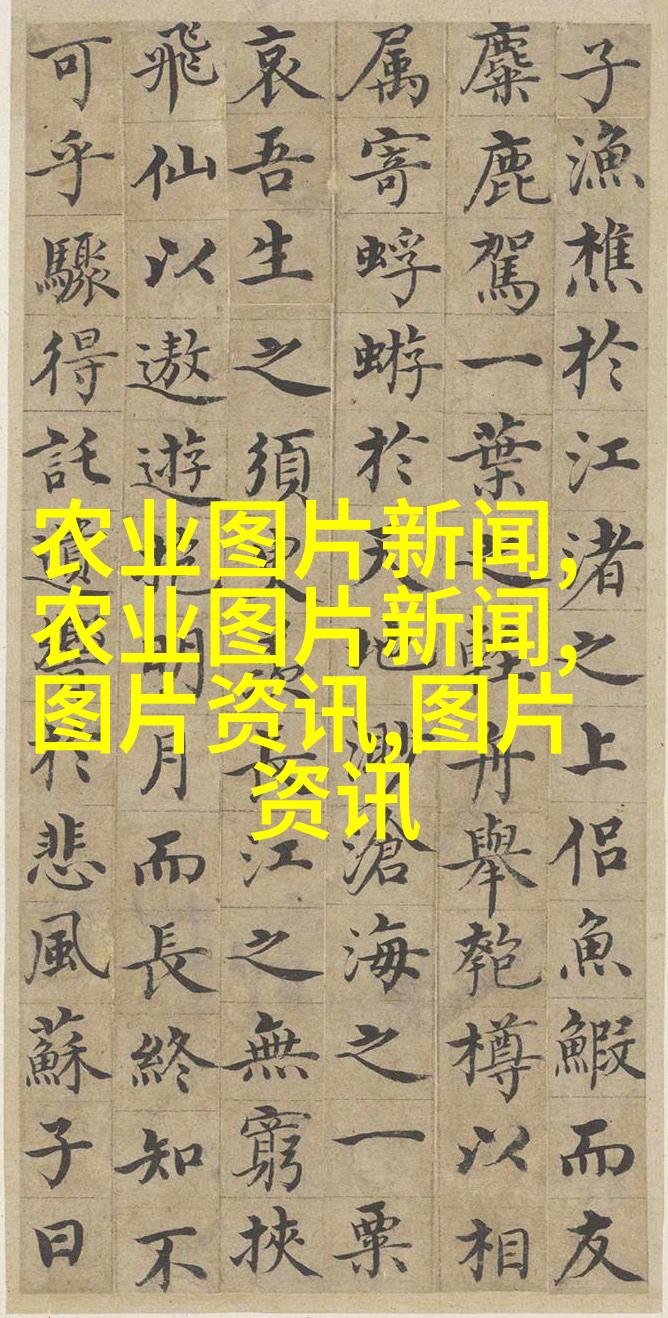 子漁樵於江渚之上侣魚鰕而友
麋鹿駕一葉之輕舟舉匏樽以相
属寄蜉蝣於天地滄海之一粟
哀吾生之須臾長江之無窮挾
飛仙以遨遊抱明月而長終知不
可乎驟得託遺響於悲風蘇子曰
农业图片新闻,
农业图片新闻,
图片资讯,图片
资讯